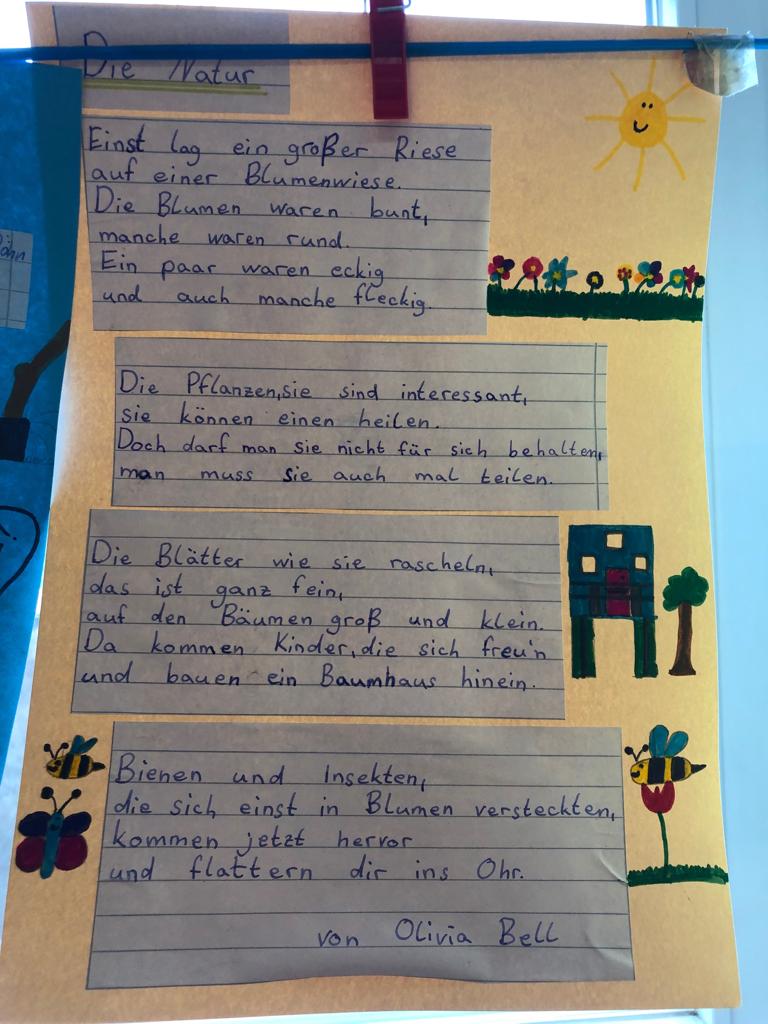 Die Natur
Einst lag ein großer Riese
auf einer Blumenwiese.
Die Blumen waren bunt,
manche waren rund.
Ein paar waren eckig
und auch manche fleckig.
Die Pflanzen,sie sind interessant,
sie können einen heilen.
Doch darf man sie nicht für sich behalten,
man muss sie auch mal teilen.
Die Blätter wie sie rascheln,
das ist ganz fein,
auf den Bäumen groß und klein.
Da kommen Kinder,die sich freu'n
und bauen ein Baumhaus hinein.
Bienen und Insekten,
die sich einst in Blumen versteckten,
kommen jetzt hervor
und flattern dir ins Ohr.
von Olivia Bell